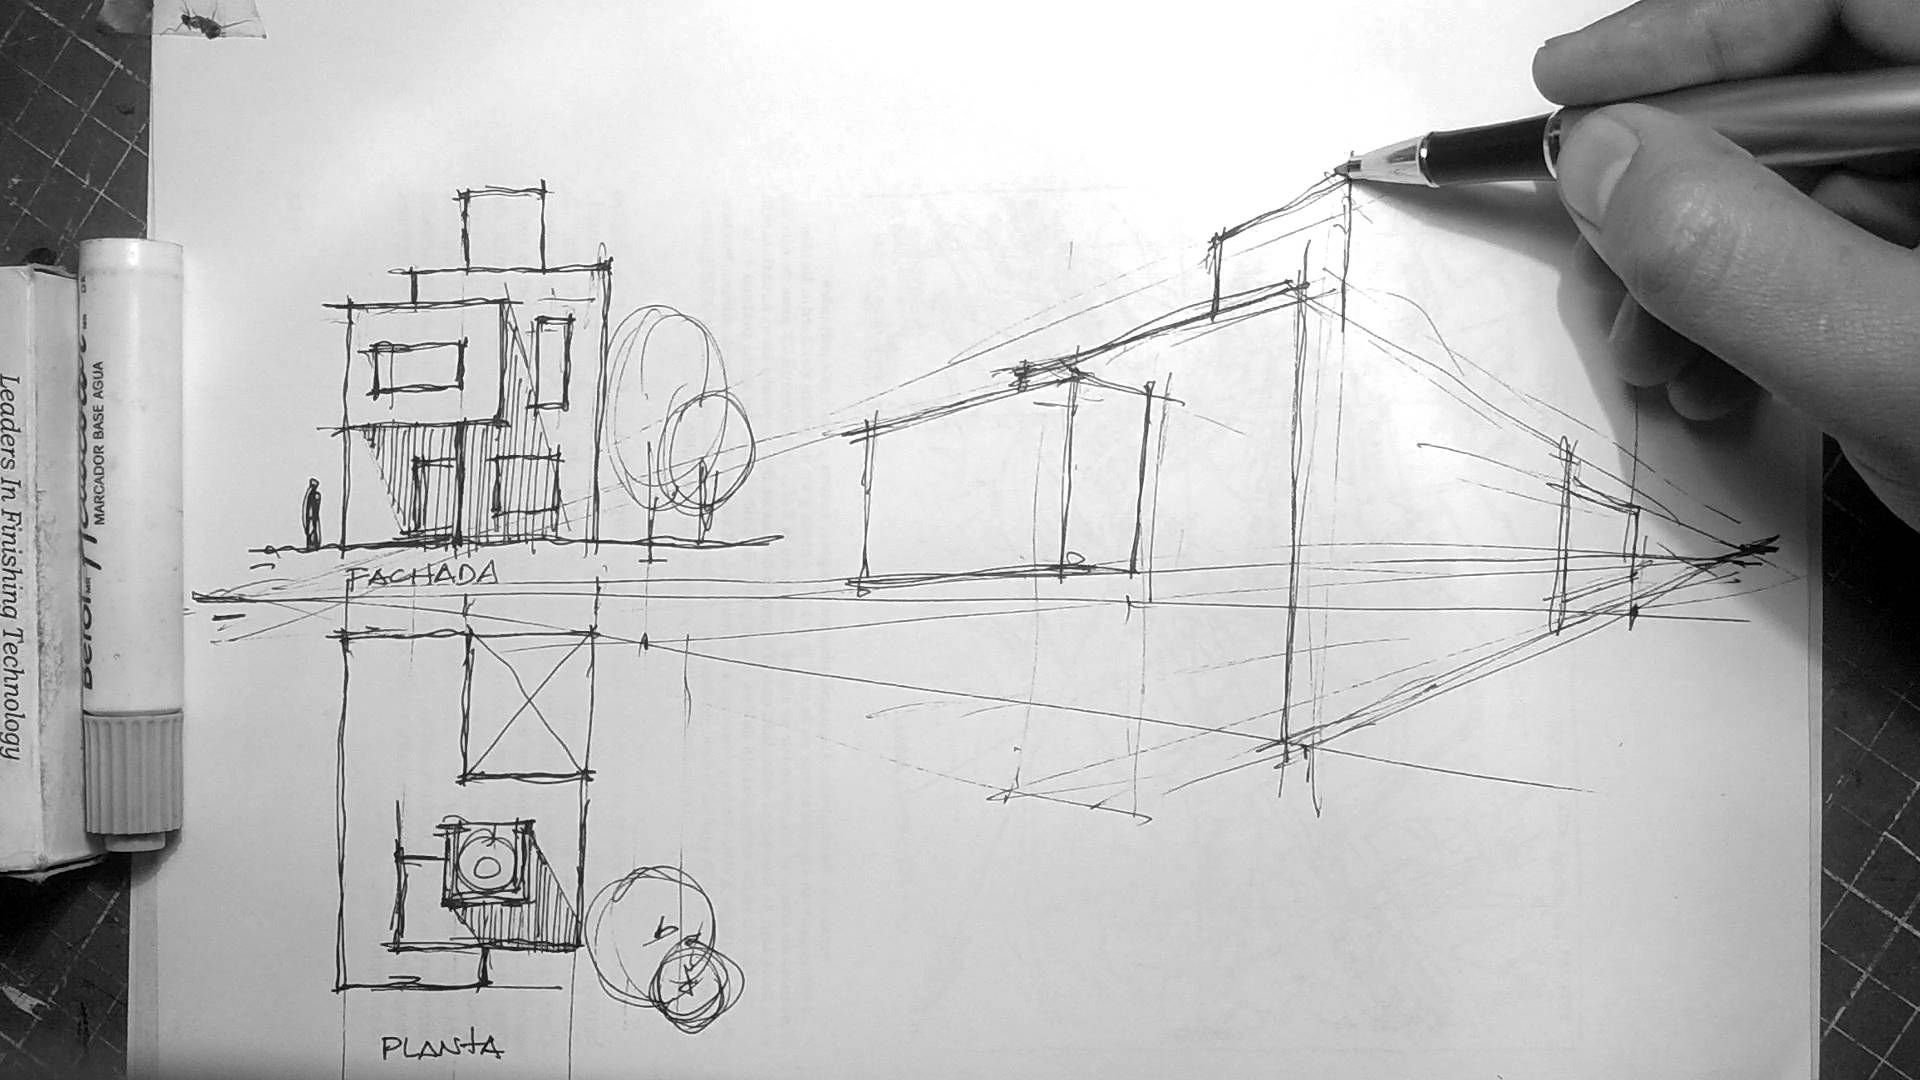 Leaders In Finishing Technology
MARCADOR BASE AGUA
FACHADA
PLANTA